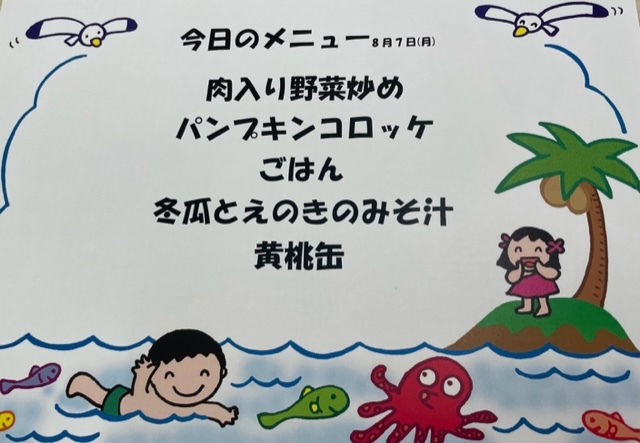 今日のメニュー 8月7日(月)
肉入り野菜炒め
パンプキンコロッケ
ごはん
冬瓜とえのきのみそ汁
黄桃缶